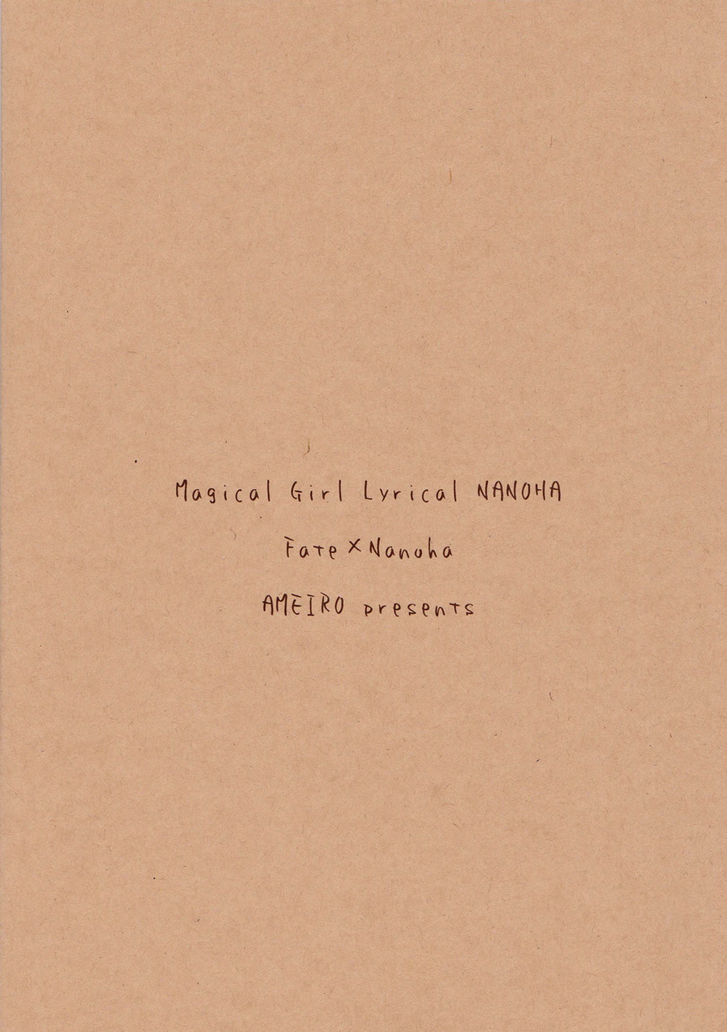 Magical Girl Lyrical NANOHA
Fate×Nanoha
AMEIRO presents